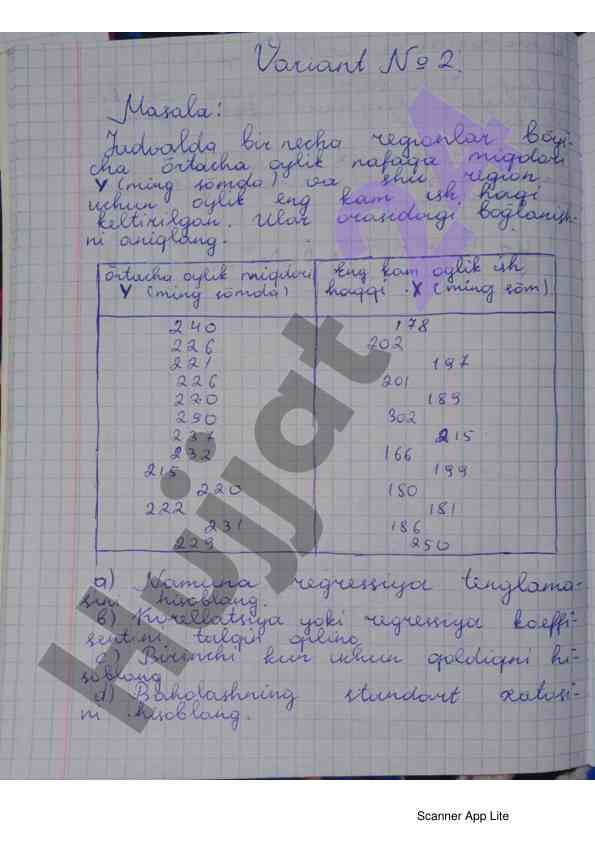 Variant № 2.
Masala:
Judvalda bir necha regionlar bóyi-
cha órtacha oylik nafaqa miqdori
Y (ming sómda) va shu region
uchun oylik eng kam ish haqi
keltirilgan. Ular orasidagi boģlanish-
ni aniqlang.
órtacha oylik miqdori Eng kam oylik ish
Y (ming sómda) haqqi X (ming sóm)
240 178
226 202
221 197
226 201
220 189
290 302
237 215
232 166
215 199
220 180
222 181
231 186
229 250
a) Namuna regressiya tenglama-
sini hisoblang.
b) Korellatsiya yoki regressiya koeffi-
sentini talqin qiling
c) Birinchi kur uchun qoldiqni hi-
soblang
d) Baholashning standart xatosi-
ni hisoblang.
Hujjat 24
Scanner App Lite